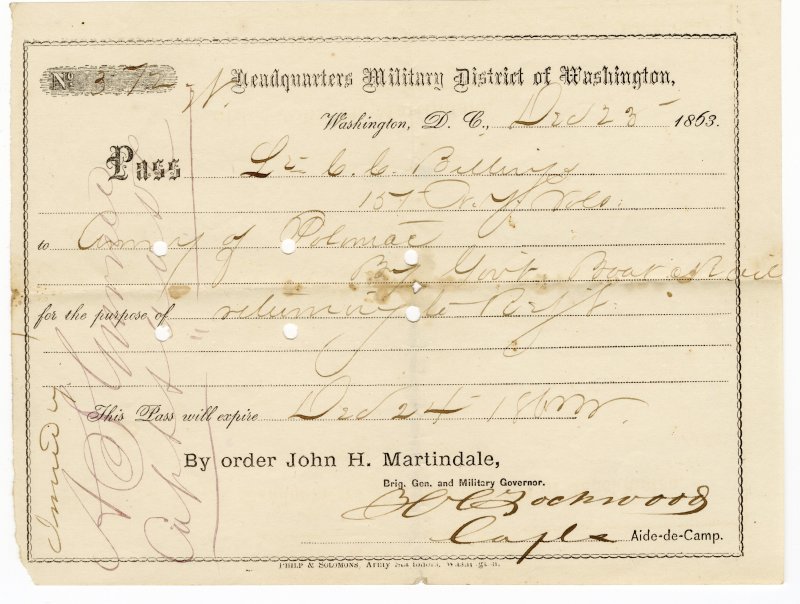 No 572 W. Headquarters Military District of Washington,
Washington, D. C., Dec 23 1863.
Pass Lt C. C. Billings
157 N. Y. Vols.
to Army of Potomac
By Govt. Boat & Rail
for the purpose of returning to Regt.
This Pass will expire Dec 24 186
By order John H. Martindale,
Brig. Gen. and Military Governor.
H C Lockwood
Capt & Aide-de-Camp.
PHILP & SOLOMONS, Army Stationers, Washington.
Capt &